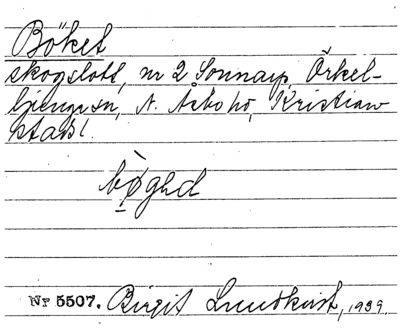 Böket
skogslott, nr 2 Sonnarp, Örkel-
ljunga sn, N. Åsbo hd, Kristian
stads l.
bøghd
Nr 5507. Birgit Lundkvist, 1939.